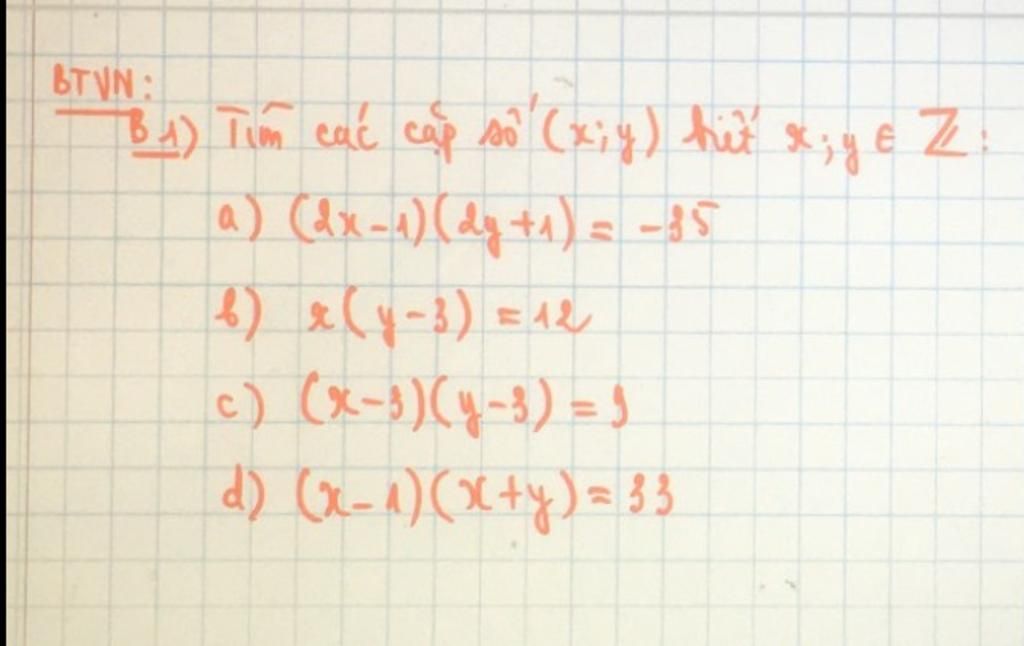 BTVN:
B1) Tìm các cặp số (x;y) biết x;y ∈ ℤ:
a) (2x-1)(2y+1) = -35
b) x(y-3) = 12
c) (x-3)(y-3) = 9
d) (x-1)(x+y) = 33